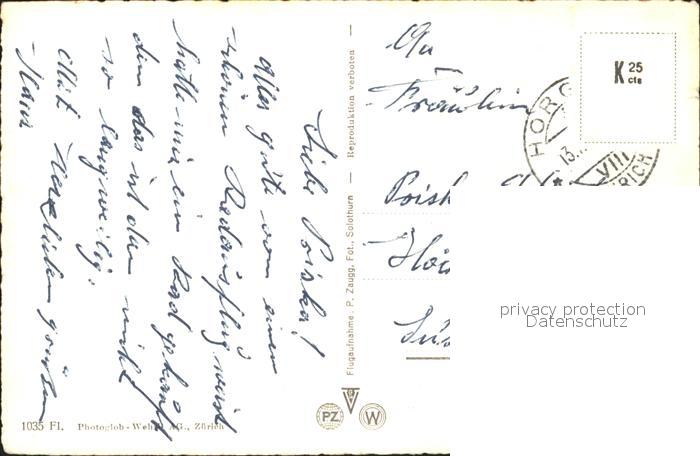 Liebe Priska!
Alles gute von einem
schönen Radausflug wirst
hatte mir ein Rad gekauft
den das ist dan nicht
so langweilig.
Mit Herzlichen grüssen
An
Fräulein
Prisk
1035 Fl. Photoglob-Wehrli AG., Zürich
Flugaufnahme: P. Zaugg, Fot., Solothurn — Reproduktion verboten —
PZ
W
K 25
cts
HORG
13.
VIII
ZÜRICH
privacy protection
Datenschutz